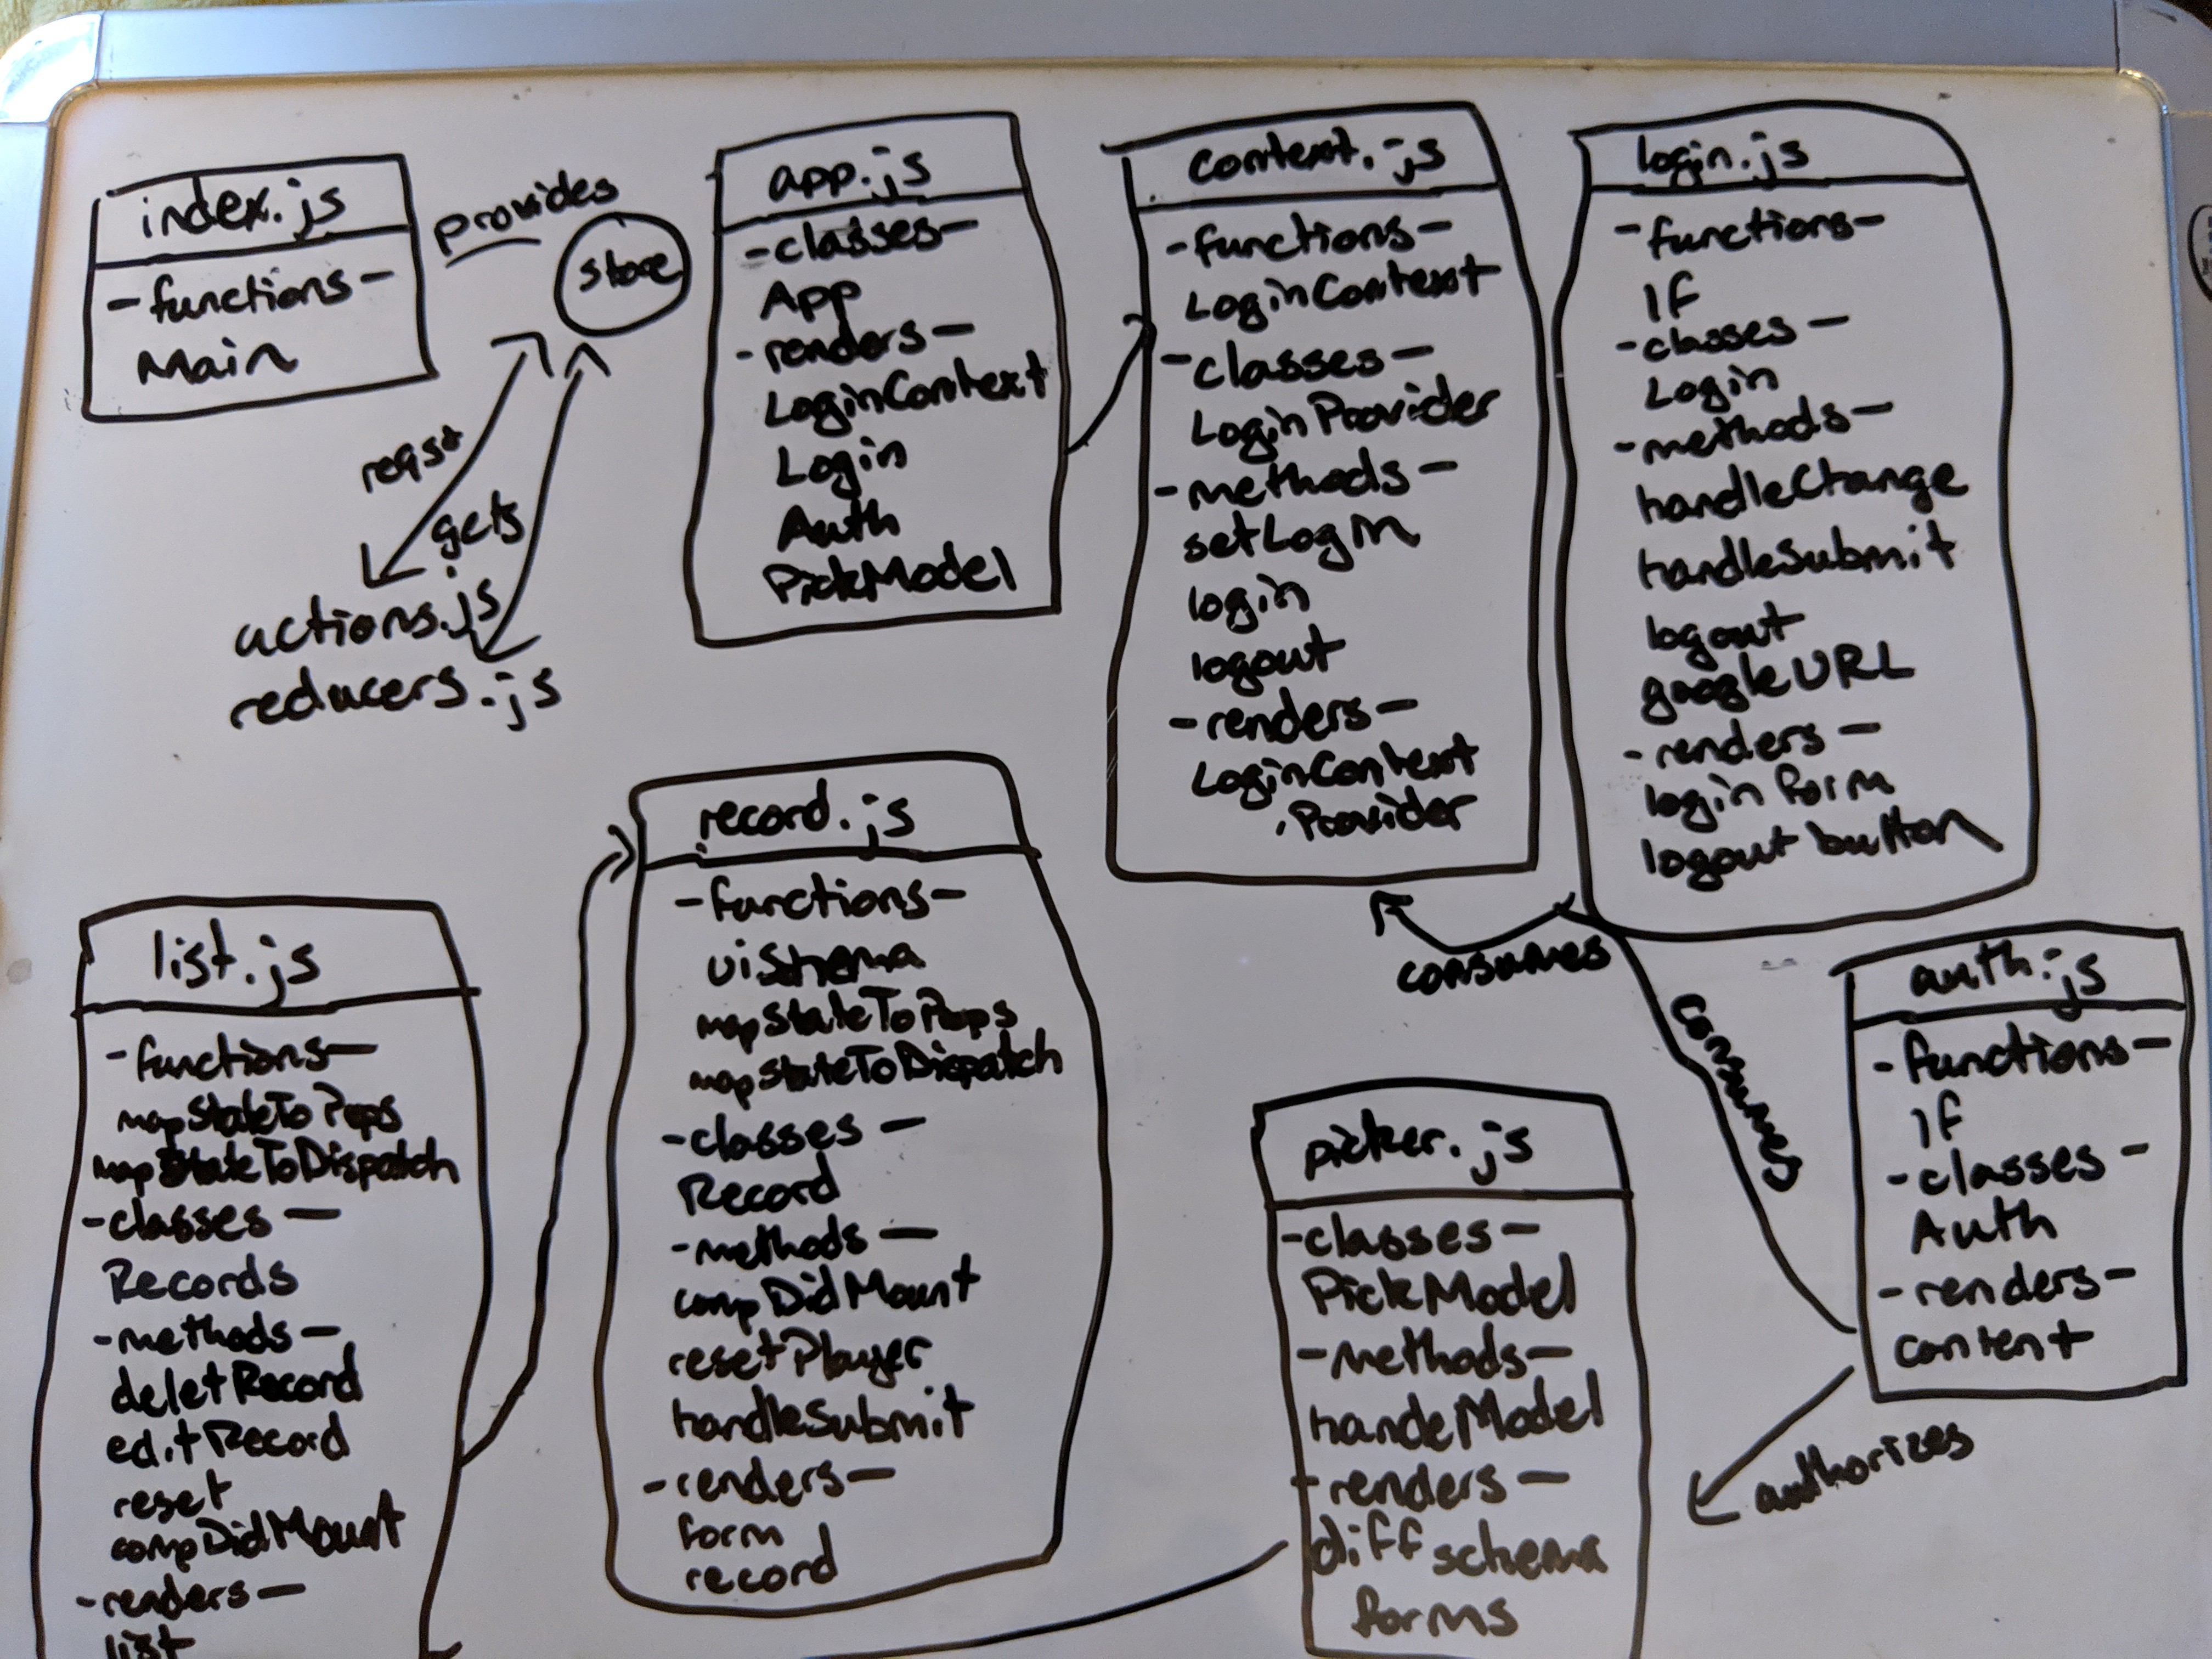 index.js
-functions-
Main
provides
store
reqst
gets
actions.js
reducers.js
app.js
-classes-
App
-renders-
LoginContext
Login
Auth
PickModel
context.js
-functions-
LoginContext
-classes-
LoginProvider
-methods-
setLogin
login
logout
-renders-
LoginContext
.Provider
login.js
-functions-
If
-classes-
Login
-methods-
handleChange
handleSubmit
logout
googleURL
-renders-
login form
logout button
consumes
consumes
list.js
-functions-
mapStateToProps
mapStateToDispatch
-classes-
Records
-methods-
deletRecord
editRecord
reset
compDidMount
-renders-
list
record.js
-functions-
uiSchema
mapStateToProps
mapStateToDispatch
-classes-
Record
-methods-
compDidMount
resetPlayer
handleSubmit
-renders-
form
record
picker.js
-classes-
PickModel
-methods-
handeModel
-renders-
diff schema
forms
auth.js
-functions-
If
-classes-
Auth
-renders-
content
authorizes